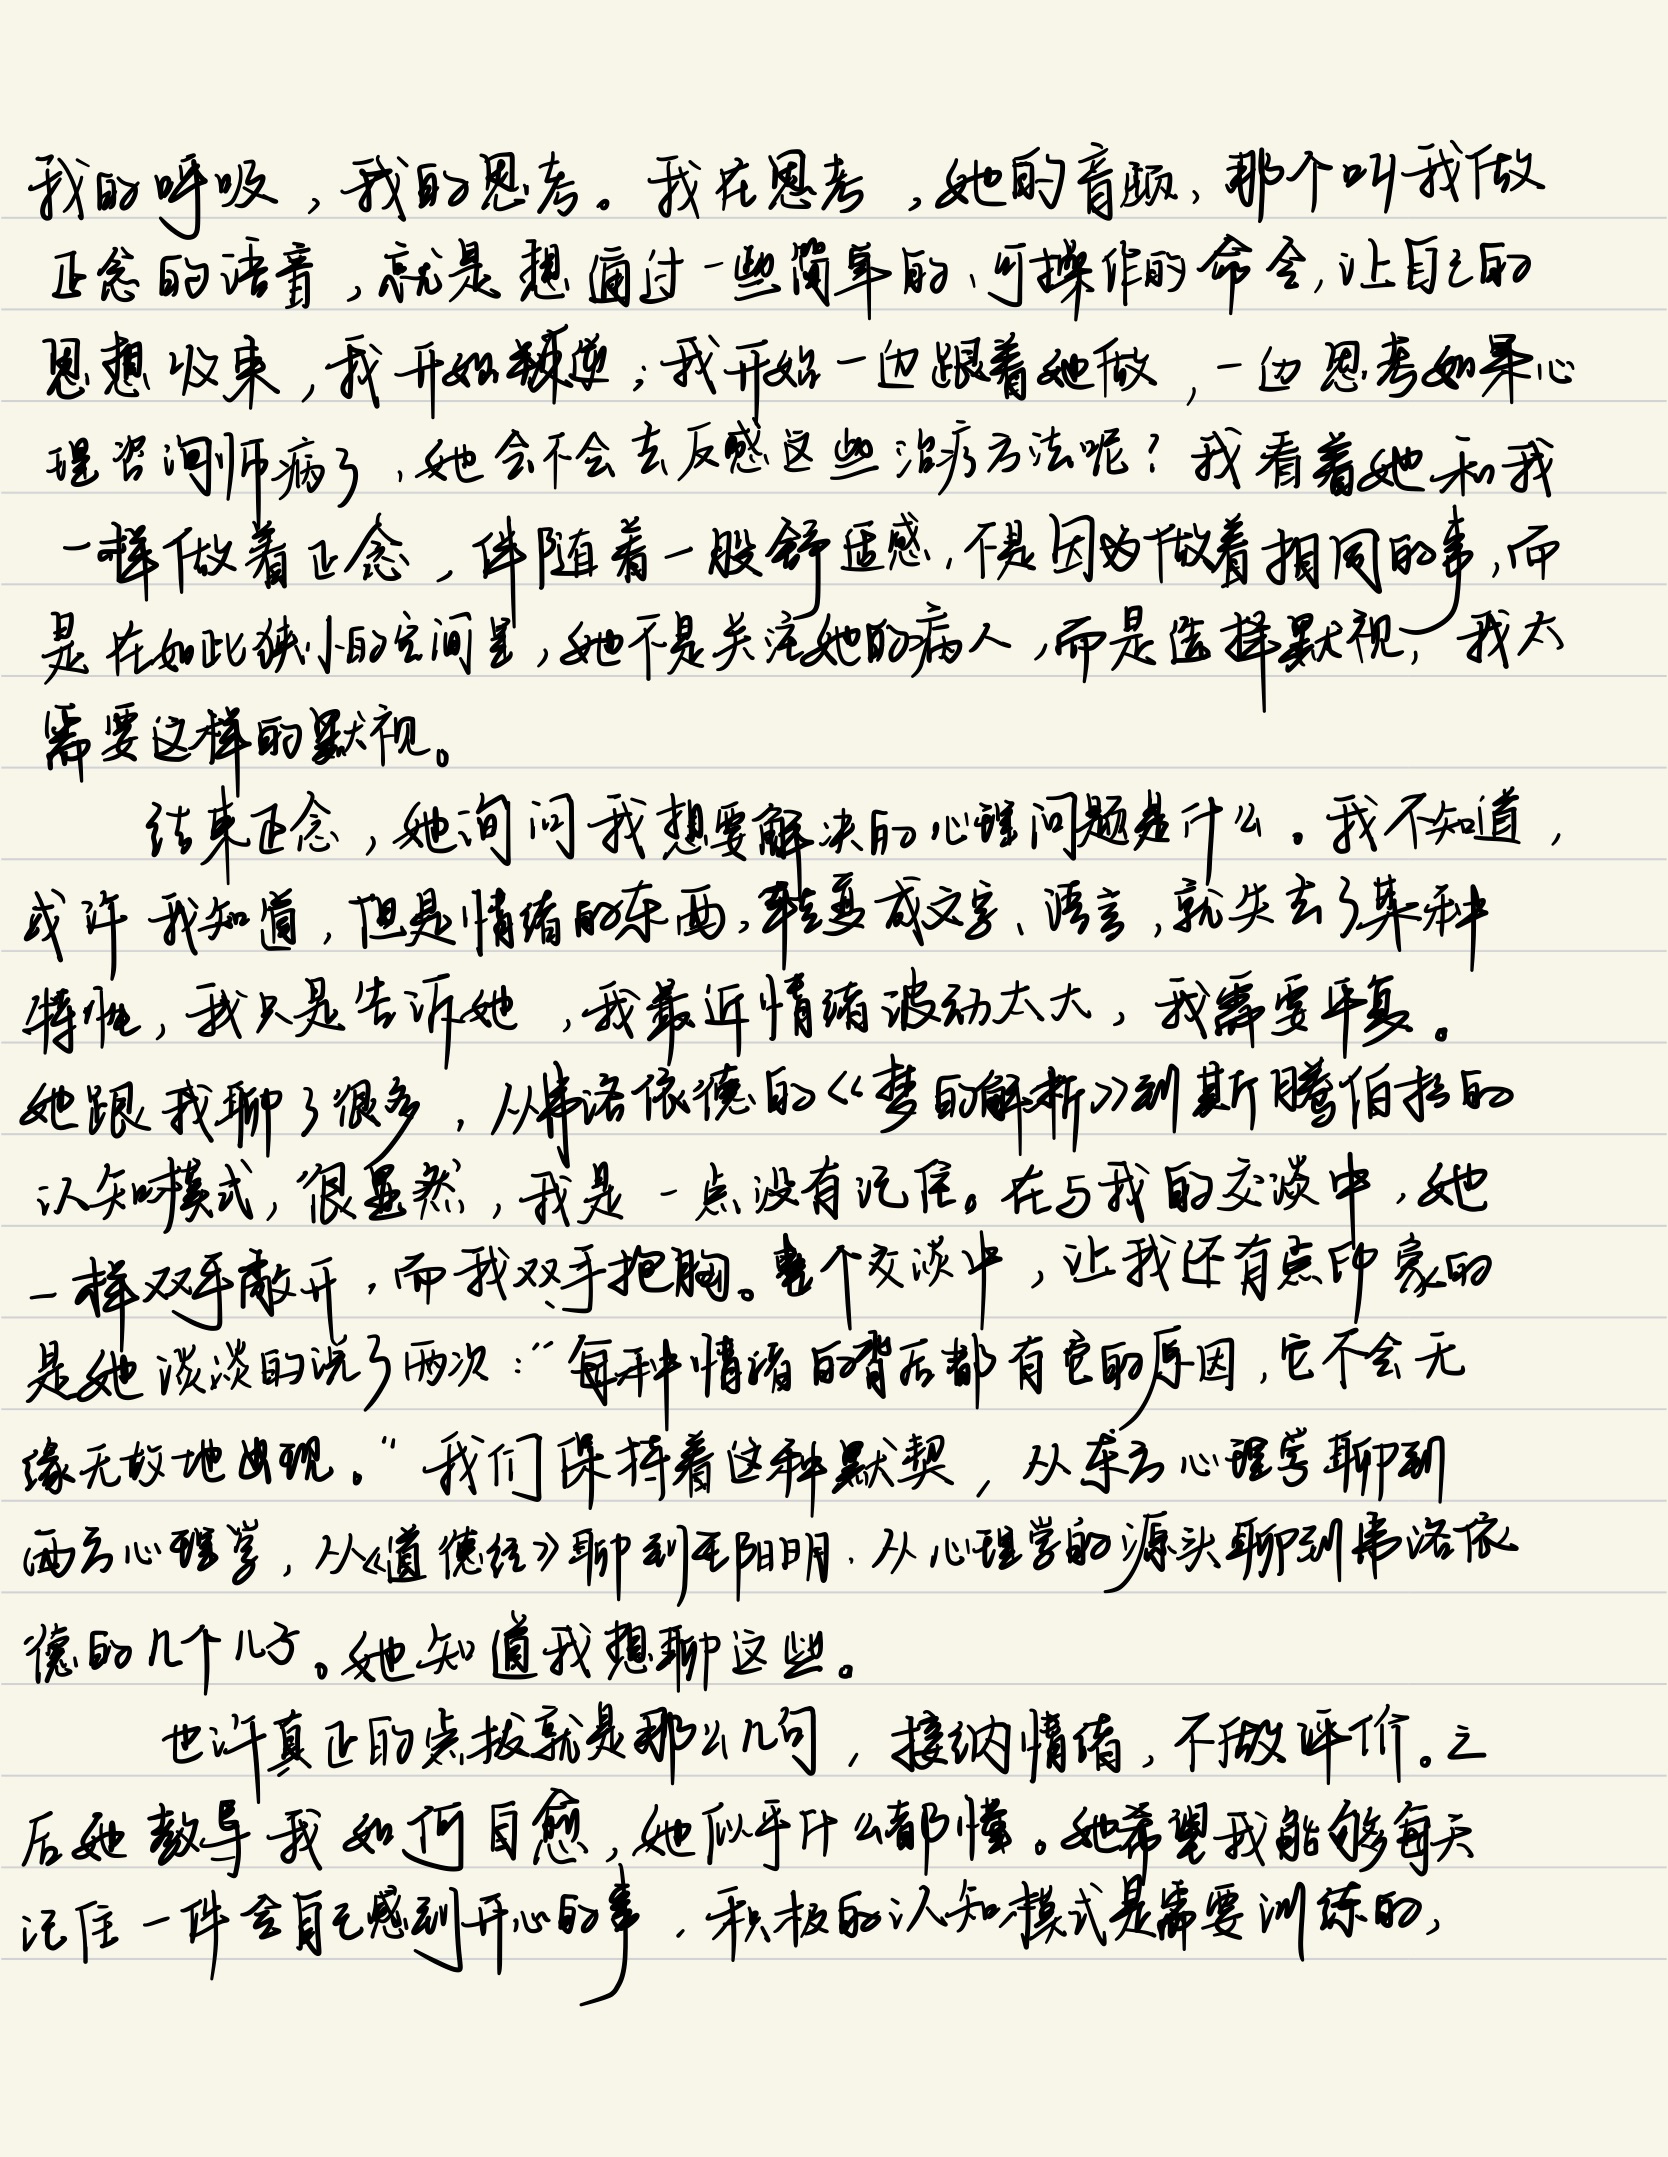 我的呼吸，我的思考。我在思考，她的音频，那个叫我做
正念的语音，就是想通过一些简单的、可操作的命令，让自己的
思想收束，我开始叛逆；我开始一边跟着她做，一边思考如果心
理咨询师病了，她会不会去反感这些治疗方法呢？我看着她和我
一样做着正念，伴随着一股舒适感，不是因为做着相同的事，而
是在如此狭小的空间里，她不是关注她的病人，而是选择默视，我太
需要这样的默视。
结束正念，她询问我想要解决的心理问题是什么。我不知道，
或许我知道，但是情绪的东西，转变成文字、语言，就失去了某种
特性，我只是告诉她，我最近情绪波动太大，我需要平复。
她跟我聊了很多，从弗洛依德的《梦的解析》到斯腾伯格的
认知模式，很显然，我是一点没有记住。在与我的交谈中，她
一样双手敞开，而我双手抱胸。整个交谈中，让我还有点印象的
是她淡淡的说了两次：“每种情绪的背后都有它的原因，它不会无
缘无故地出现。”我们保持着这种默契，从东方心理学聊到
西方心理学，从《道德经》聊到王阳明，从心理学的源头聊到弗洛依
德的几个儿子。她知道我想聊这些。
也许真正的点拔就是那么几句，接纳情绪，不做评价。之
后她教导我如何自愈，她似乎什么都懂。她希望我能够每天
记住一件会自己感到开心的事，积极的认知模式是需要训练的，